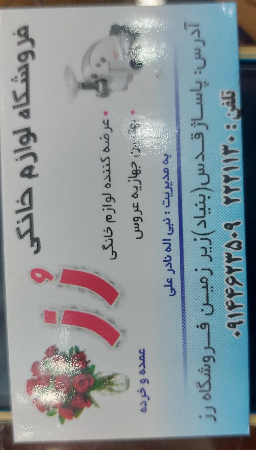 فروشگاه لوازم خانگی
رز
• عرضه کننده لوازم خانگی
• بهترین جهازیه عروس
به مدیریت : نبی اله نادر علی
عمده و خرده
آدرس: پاساژ قدس(بنیاد)زیر زمین فروشگاه رز
تلفن : ۲۲۲۱۱۳۰ ۰۹۱۴۴۶۲۳۵۰۹